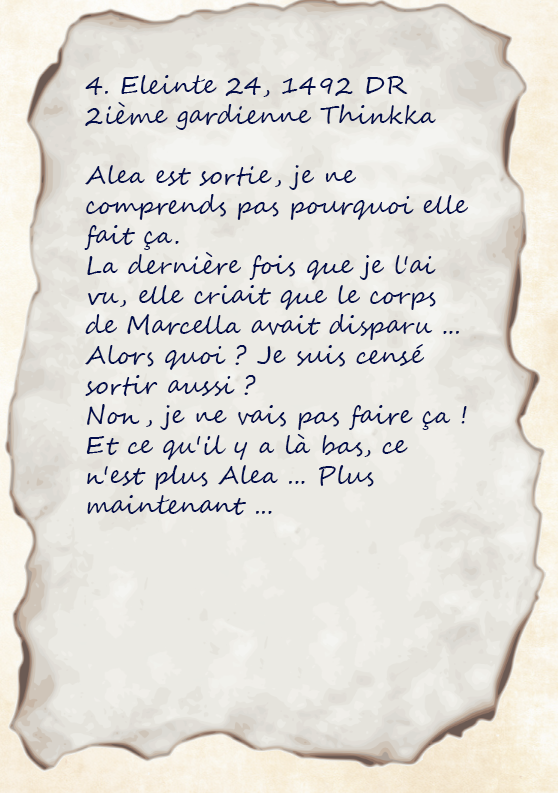 4. Eleinte 24, 1492 DR
2ième gardienne Thinkka
Alea est sortie, je ne
comprends pas pourquoi elle
fait ça.
La dernière fois que je l'ai
vu, elle criait que le corps
de Marcella avait disparu ...
Alors quoi ? Je suis censé
sortir aussi ?
Non, je ne vais pas faire ça !
Et ce qu'il y a là bas, ce
n'est plus Alea ... Plus
maintenant ...